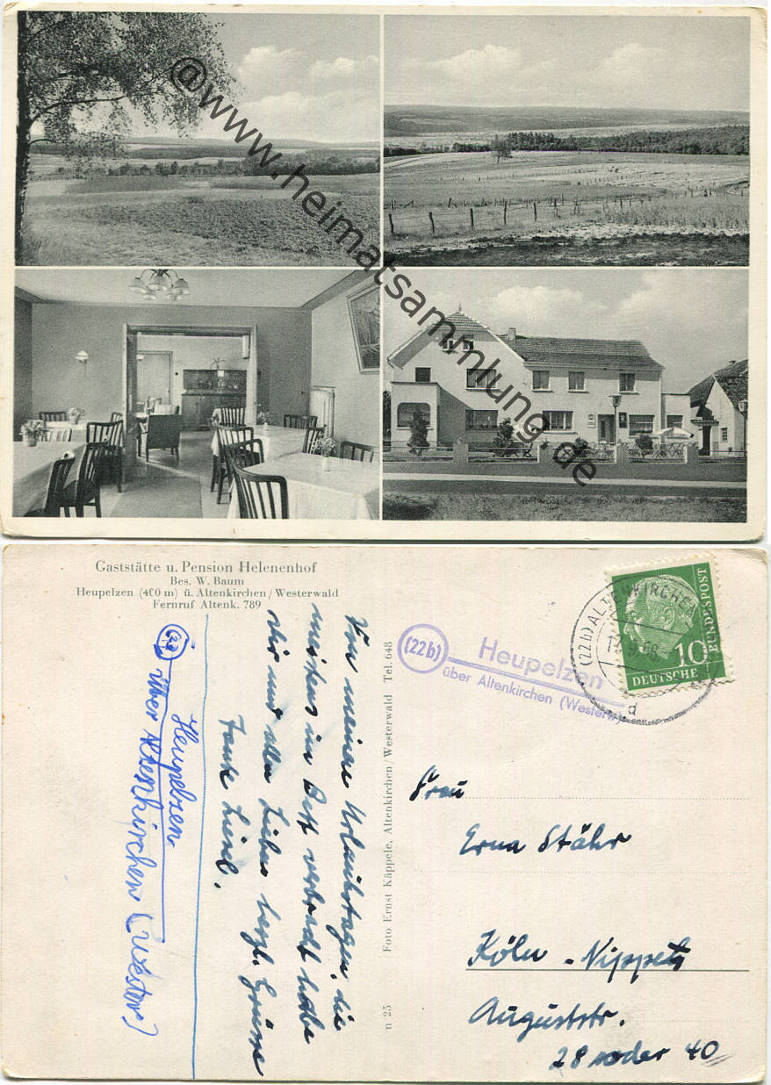 @www.heimatsammlung.de
Gaststätte u. Pension Helenenhof
Bes. W. Baum
Heupelzen (400 m) ü. Altenkirchen/Westerwald
Fernruf Altenk. 789
(22b)
Heupelzen
über Altenkirchen (Westerw)
Von meinen Urlaubstagen, die
ich im Dorf verbracht habe
dir und allen Lieben herzl. Grüsse
Tante Liesel.
n 25 Foto Ernst Käppele, Altenkirchen/Westerwald Tel. 648
(22b)
Heupelzen
über Altenkirchen (Westerw)
(22b) ALTENKIRCHEN
d
DEUTSCHE
BUNDESPOST
10
Frau
Erna Stähr
Köln-Nippes
Auguststr.
28 oder 40